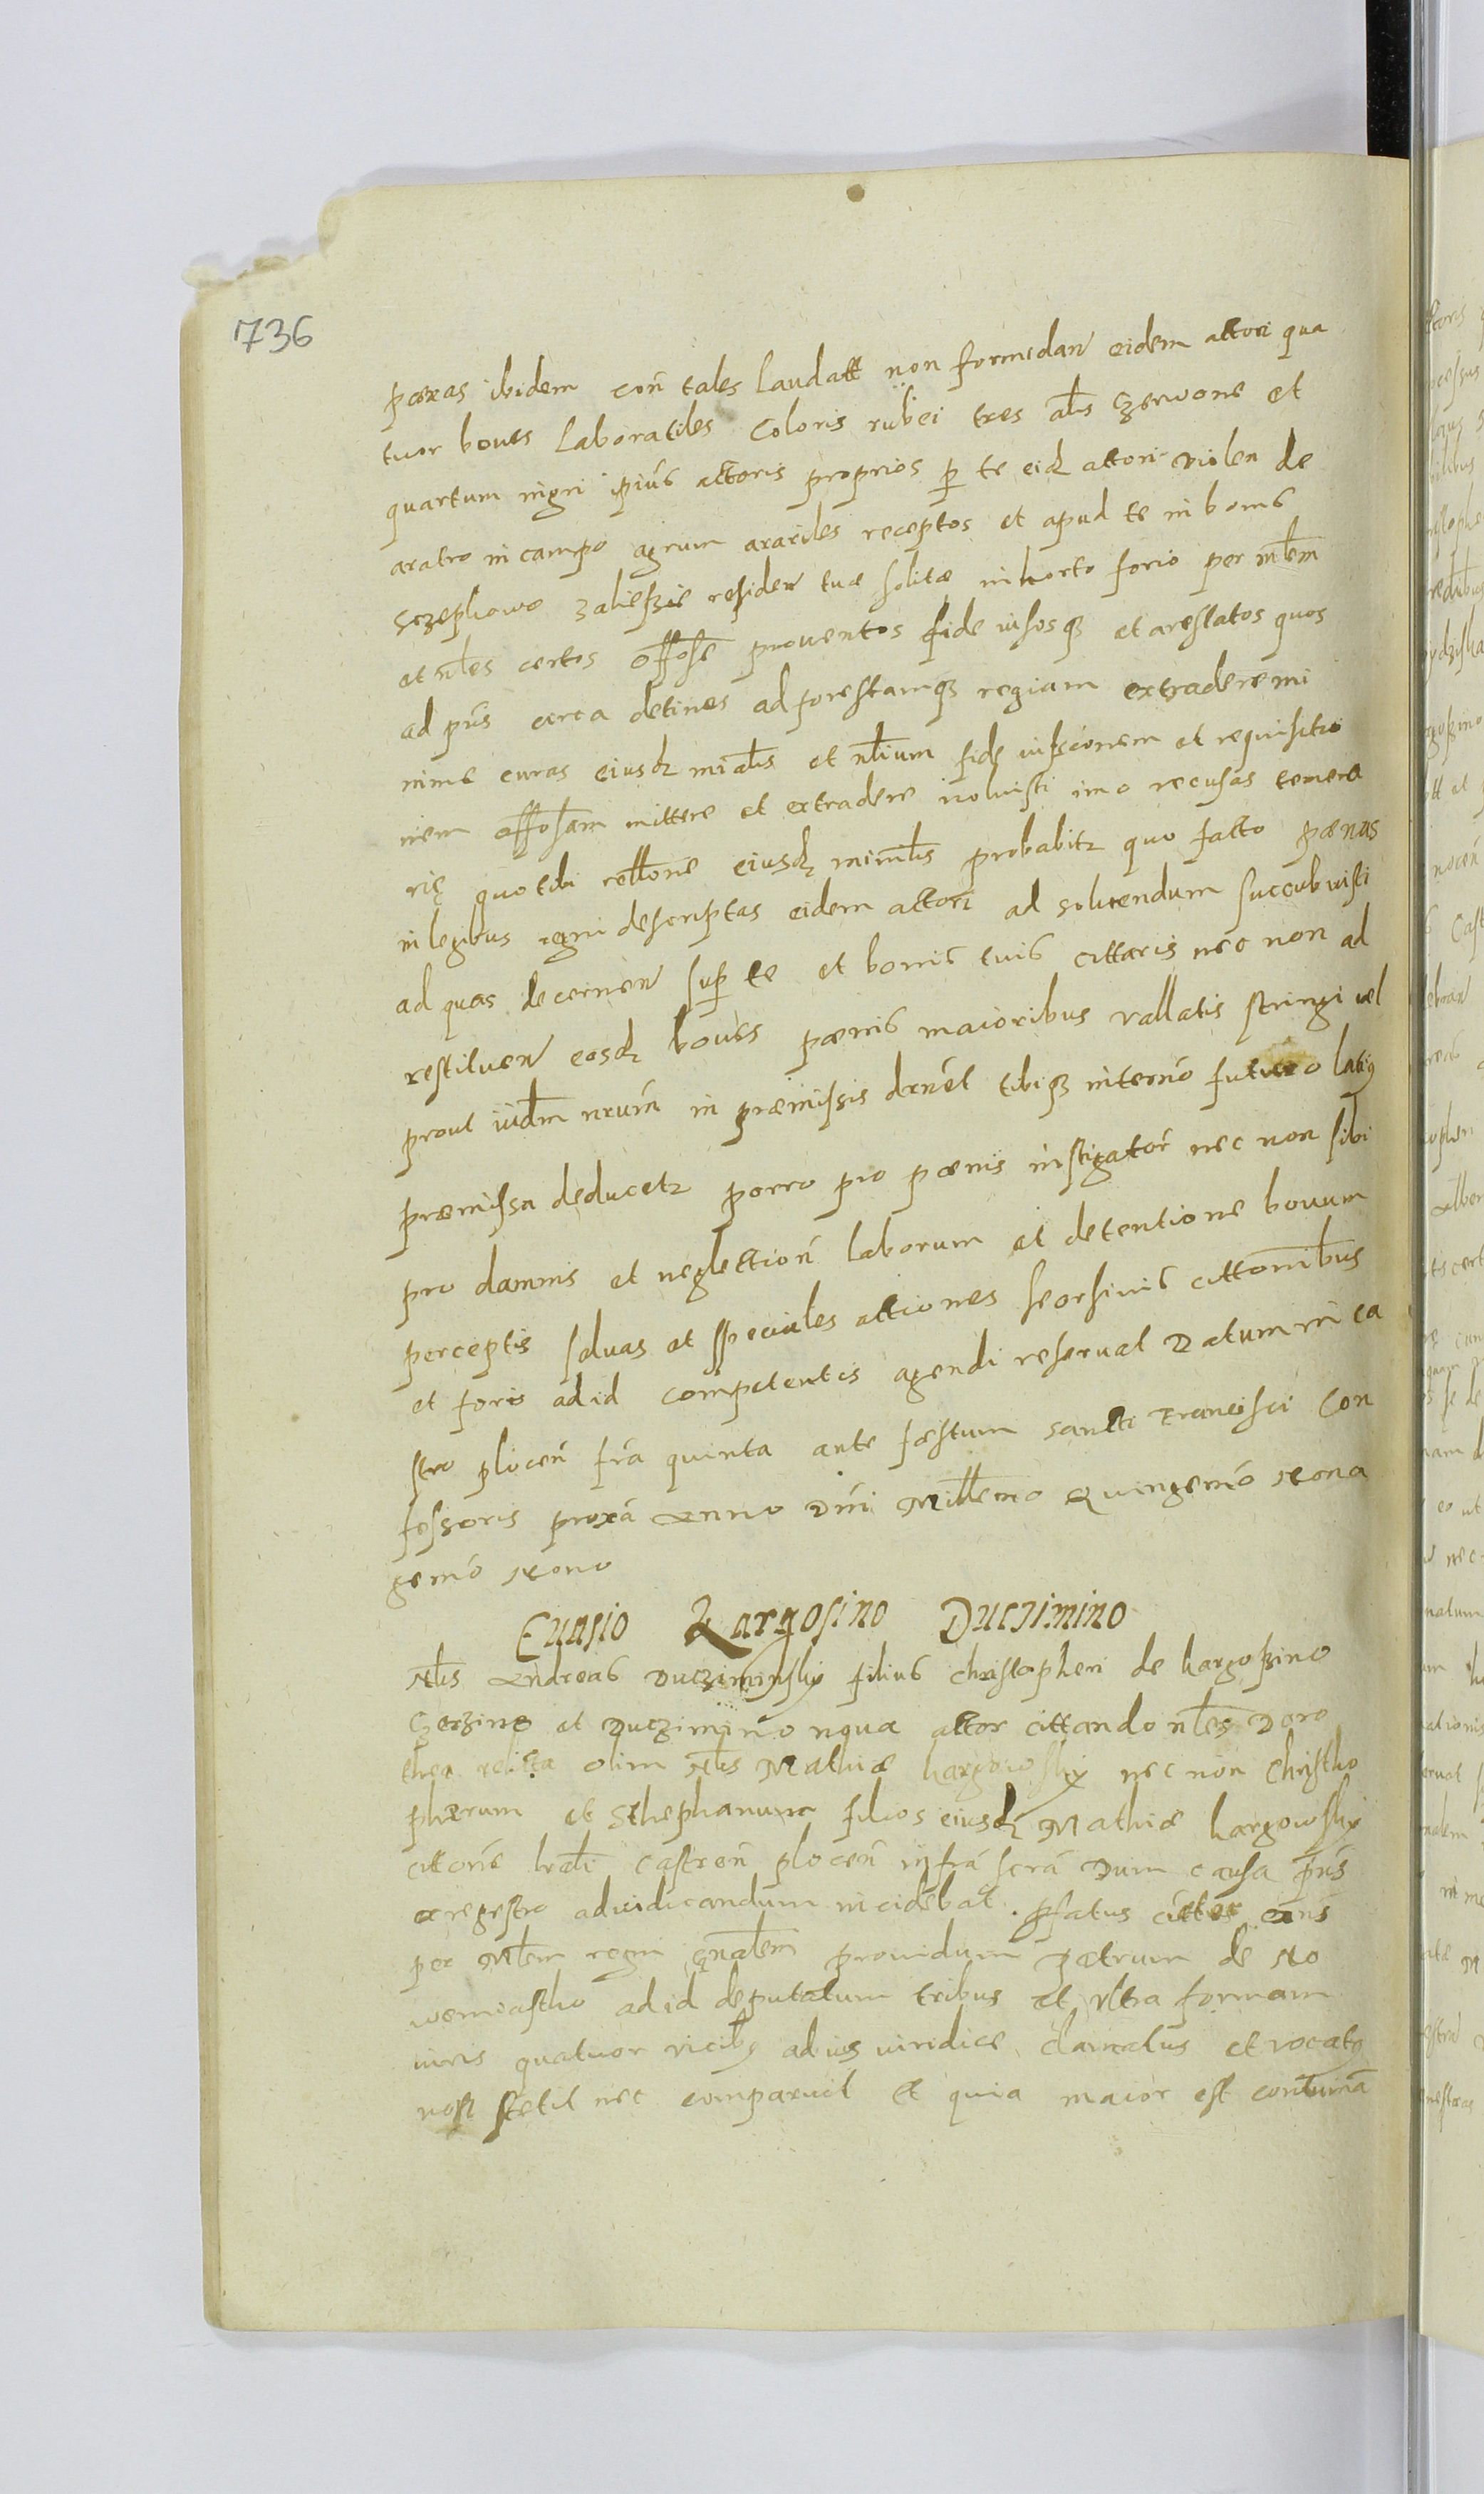 736
pœnas ibidem con tales laudatt non formidan eidem actori qua
tuor boues Laboratiles Coloris rubei tres als Czerwone et
quartum nigri ipius actoris proprios p te eidz actori violen de
aratro in campo agrum arariles receptos et apud te in bonis
Sczephowo Zaliessie residen tuæ solitæ in horto forio per mlem
et nles certos offose prouentos fide iussosqz et arestatos quos
ad pns circa detines ad forestamqz regiam extradere mi
nime curas eiusdz mialis et nlium fide iussionem et requisitio
nem offosam mittere et extradere noluisti imo recusas temera
rię quo tibi rellone eiusdz mimlis probabitz quo facto pœnas
in legibus regni descriptas eidem actori ad soluendum succubuisti
ad quas decernen sup te et bonis tuis cittaris nec non ad
restituen eosdz boues pœnis maioribus vallatis stringi vel
prout iudm nrum in præmissis drnet tibiqz in termo futuro latig
præmissa deducetz porro pro pœnis instigator nec non sibi
pro damnis et neglection laborum et detentione bouum
perceptis saluas et speciales actiones seorsiuis cittonibus
et foris ad id competentis agendi reseruat Datum in ca
stro plocen fra quinta ante fæstum sancti Francisci Con
fessoris proxa Anno Dni Millemo Quingemo Nona
gemo Nono
Euasio Kargosino Duczimino
Nlis Andreas Ducziminsky filius Christopheri de kargossino
Czerzino et Duczimino nqua actor cittando nles Doro
thea relicta olim Nlis Mathiæ kargowsky nec non Christho
pherum et Sthephanum filios eiusdz Mathiæ kargowsky
cittone lrali castren plocen infra scra Dum causa pns
ex regestro ad iudicandum incidebat. Pfatus cittos eius
per Mlem regni gnalem prouidum Petrum de No
wemiastho ad id deputatum tribus et vltra formam
iuris quatuor vicibg ad ius iuridice clamatus et vocatg
non stetit nec comparuit Et quia maior est contuma